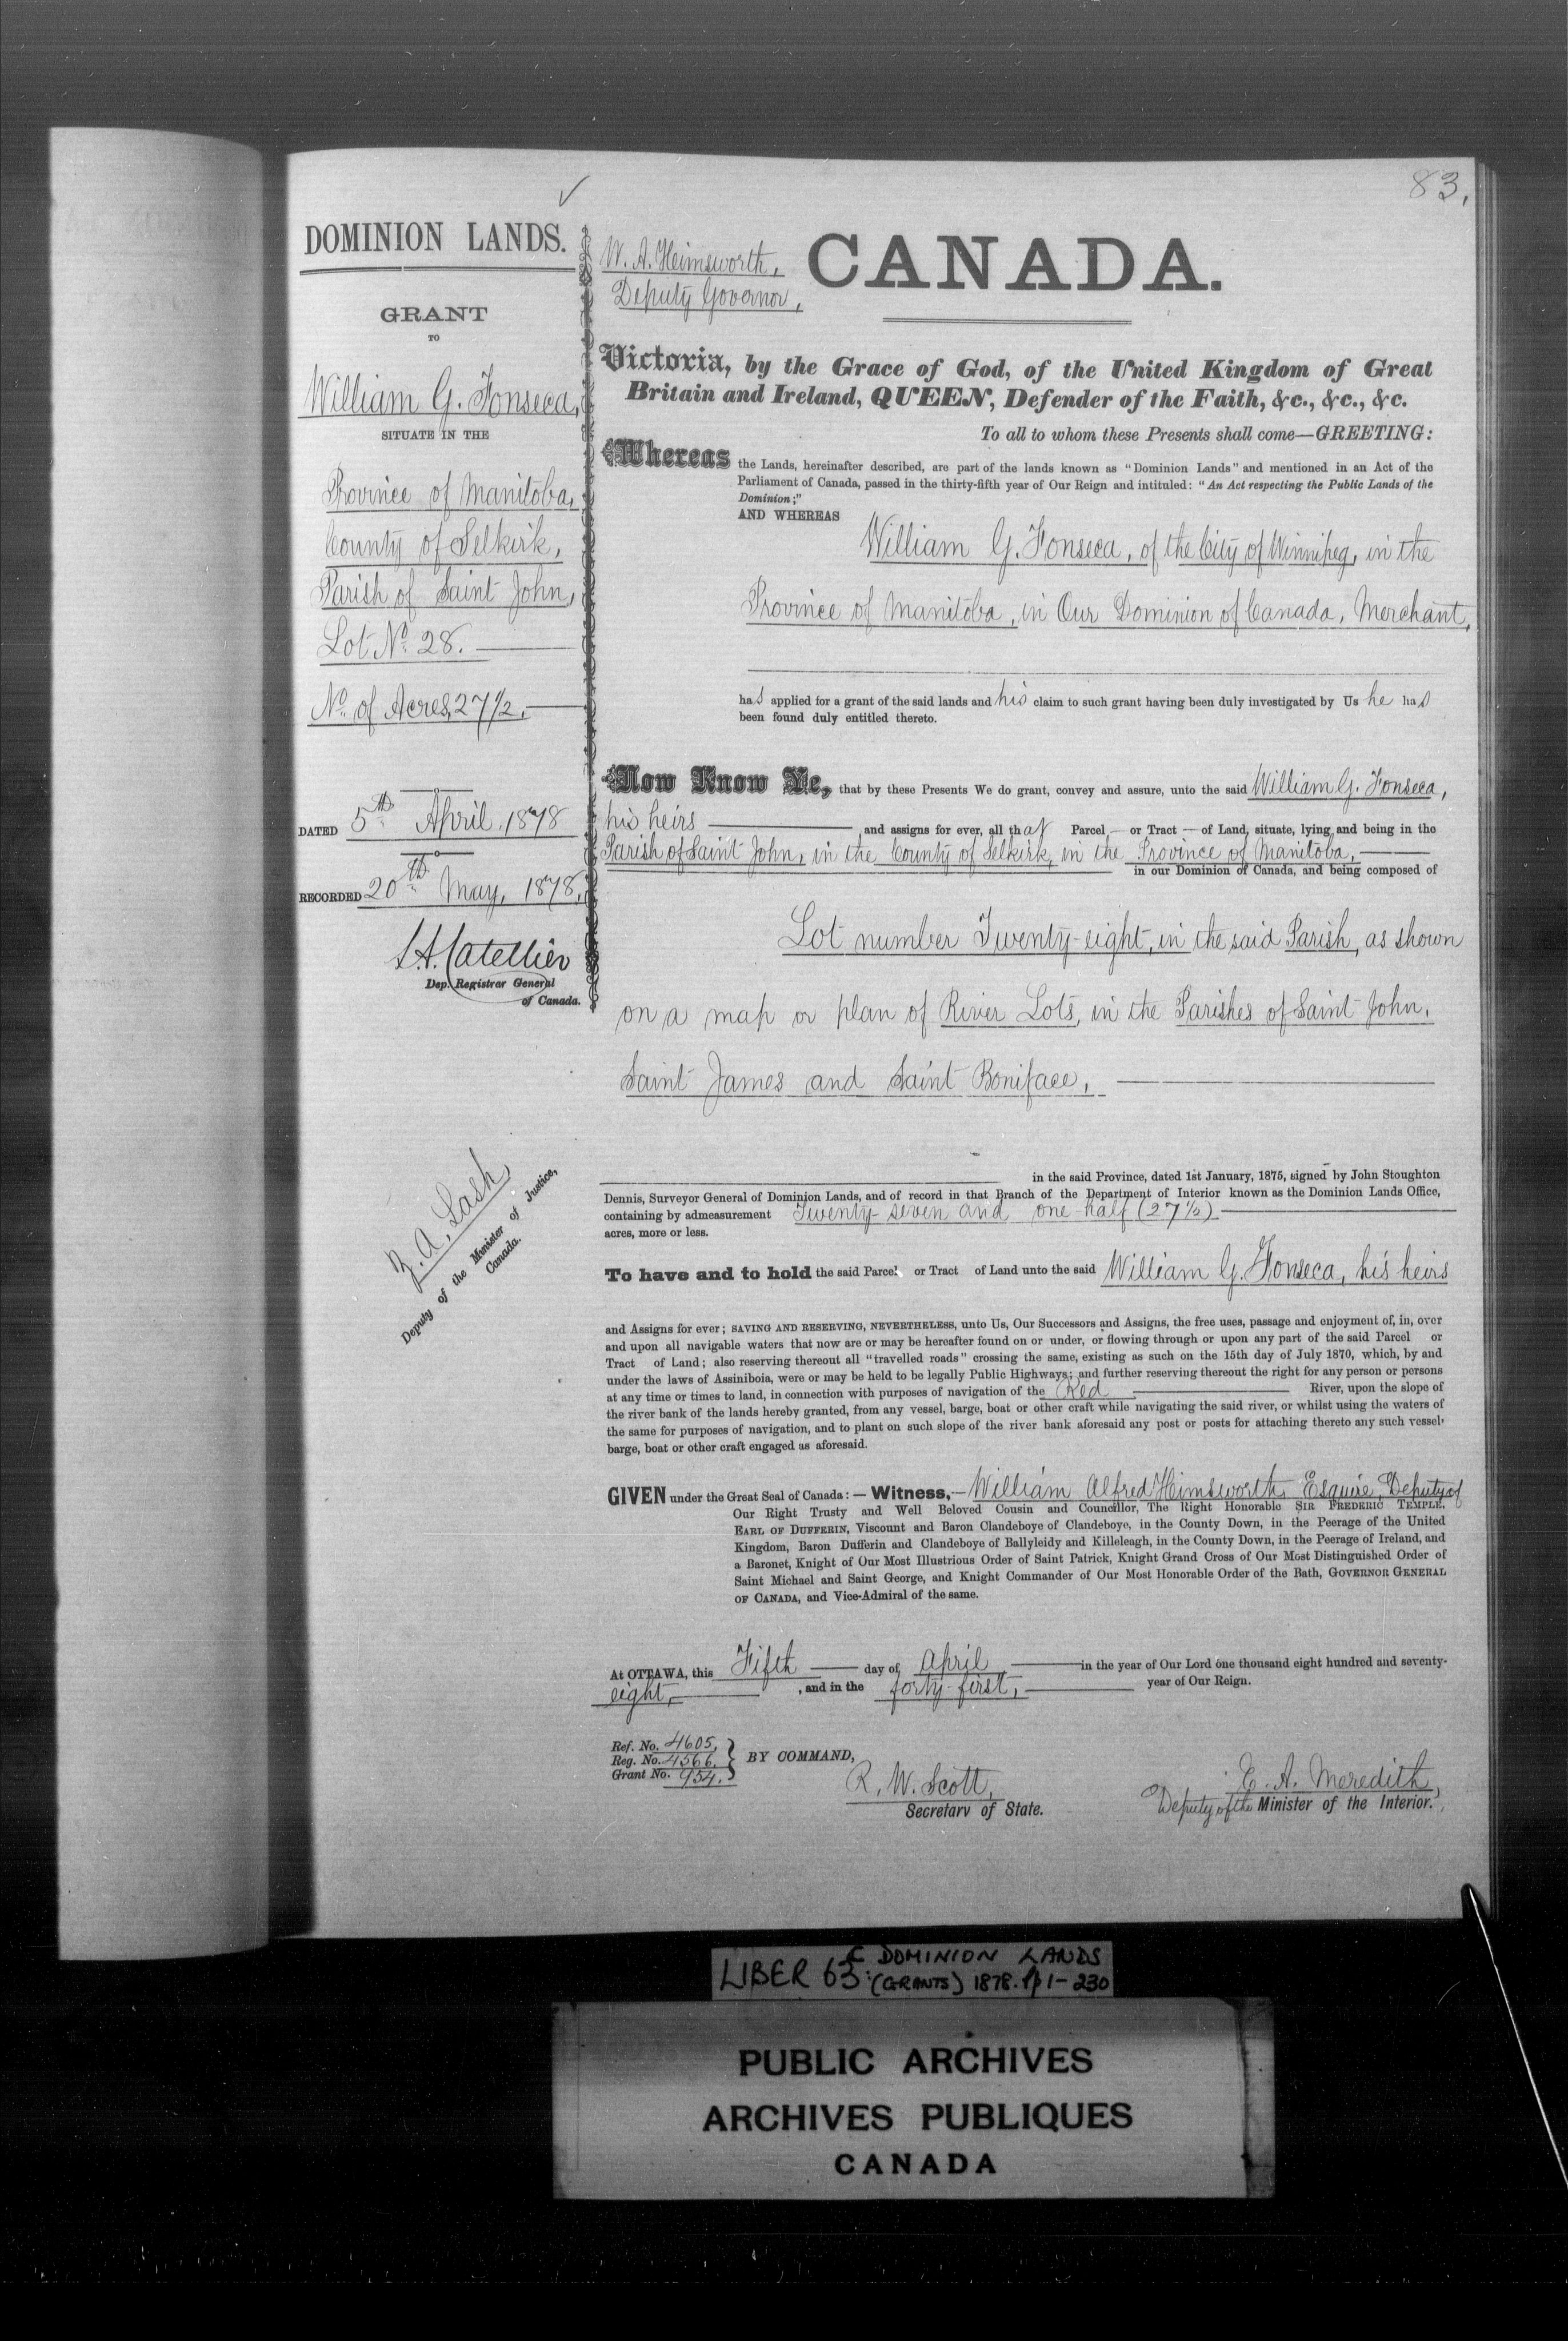 83.
DOMINION LANDS.
GRANT
TO
William G. Fonseca,
SITUATE IN THE
Province of Manitoba,
County of Selkirk,
Parish of Saint John,
Lot No. 28.
No. of Acres, 27 1/2,
DATED 5th April, 1878
RECORDED 20th May, 1878,
L.A. Catellier
Dep. Registrar General
of Canada.
Z. A. Lash
Deputy of the Minister of Justice,
Canada.
W. A. Himsworth,
Deputy Governor,
CANADA.
Victoria, by the Grace of God, of the United Kingdom of Great
Britain and Ireland, QUEEN, Defender of the Faith, &c., &c., &c.
To all to whom these Presents shall come—GREETING:
Whereas the Lands, hereinafter described, are part of the lands known as "Dominion Lands" and mentioned in an Act of the
Parliament of Canada, passed in the thirty-fifth year of Our Reign and intituled: "An Act respecting the Public Lands of the
Dominion;"
AND WHEREAS
William G. Fonseca, of the City of Winnipeg, in the
Province of Manitoba, in Our Dominion of Canada, Merchant,
has applied for a grant of the said lands and his claim to such grant having been duly investigated by Us he has
been found duly entitled thereto.
Now Know Ye, that by these Presents We do grant, convey and assure, unto the said William G. Fonseca,
his heirs and assigns for ever, all that Parcel — or Tract — of Land, situate, lying and being in the
Parish of Saint John, in the County of Selkirk, in the Province of Manitoba,
in our Dominion of Canada, and being composed of
Lot number Twenty-eight, in the said Parish, as shown
on a map or plan of River Lots, in the Parishes of Saint John,
Saint James and Saint Boniface,
in the said Province, dated 1st January, 1875, signed by John Stoughton
Dennis, Surveyor General of Dominion Lands, and of record in that Branch of the Department of Interior known as the Dominion Lands Office,
containing by admeasurement Twenty-seven and one-half (27 1/2)
acres, more or less.
To have and to hold the said Parcel or Tract of Land unto the said William G. Fonseca, his heirs
and Assigns for ever; SAVING AND RESERVING, NEVERTHELESS, unto Us, Our Successors and Assigns, the free uses, passage and enjoyment of, in, over
and upon all navigable waters that now are or may be hereafter found on or under, or flowing through or upon any part of the said Parcel or
Tract of Land; also reserving thereout all "travelled roads" crossing the same, existing as such on the 15th day of July 1870, which, by and
under the laws of Assiniboia, were or may be held to be legally Public Highways; and further reserving thereout the right for any person or persons
at any time or times to land, in connection with purposes of navigation of the Red River, upon the slope of
the river bank of the lands hereby granted, from any vessel, barge, boat or other craft while navigating the said river, or whilst using the waters of
the same for purposes of navigation, and to plant on such slope of the river bank aforesaid any post or posts for attaching thereto any such vessel,
barge, boat or other craft engaged as aforesaid.
GIVEN under the Great Seal of Canada: — Witness,— William Alfred Himsworth, Esquire, Deputy of
Our Right Trusty and Well Beloved Cousin and Councillor, The Right Honorable SIR FREDERIC TEMPLE,
EARL OF DUFFERIN, Viscount and Baron Clandeboye of Clandeboye, in the County Down, in the Peerage of the United
Kingdom, Baron Dufferin and Clandeboye of Ballyleidy and Killeleagh, in the County Down, in the Peerage of Ireland, and
a Baronet, Knight of Our Most Illustrious Order of Saint Patrick, Knight Grand Cross of Our Most Distinguished Order of
Saint Michael and Saint George, and Knight Commander of Our Most Honorable Order of the Bath, GOVERNOR GENERAL
OF CANADA, and Vice-Admiral of the same.
At OTTAWA, this Fifth day of April in the year of Our Lord one thousand eight hundred and seventy-
eight, , and in the forty-first, year of Our Reign.
Ref. No. 4605,
Reg. No. 4566.
Grant No. 954.
BY COMMAND,
R. W. Scott,
Secretary of State.
E. A. Meredith,
Deputy of the Minister of the Interior.
LIBER 63 C DOMINION LANDS
(GRANTS) 1878. pp 1-230
PUBLIC ARCHIVES
ARCHIVES PUBLIQUES
CANADA